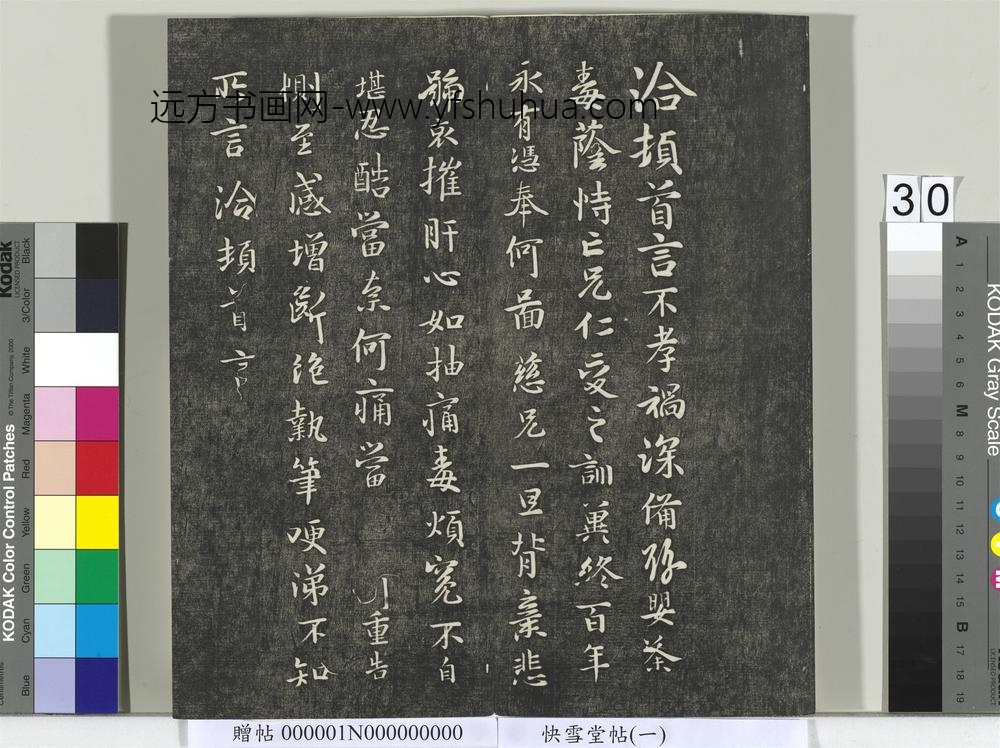 洽頓首言不孝禍深備豫嬰荼
毒蔭恃亡兄仁愛之訓冀終百年
永有憑奉何圖慈兄一旦背棄悲
號哀摧肝心如抽痛毒煩冤不自
堪忍酷當奈何痛當 重告
惻至感增斷絶執筆哽涕不知
所言洽頓首言
远方书画网-www.yfshuhua.com
30
贈帖 000001N000000000
快雪堂帖(一)
Kodak
LICENSED PRODUCT
KODAK Color Control Patches
© The Tiffen Company, 2000
Black
3/Color
White
Magenta
Red
Yellow
Green
Cyan
Blue
KODAK Gray Scale
A 1 2 3 4 5 6 M 8 9 10 11 12 13 14 15 B 17 18 19